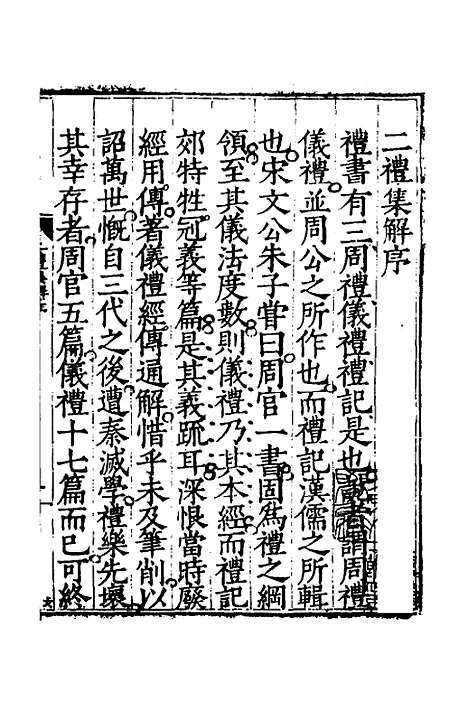 二禮集解序
禮書有三周禮儀禮禮記是也說者謂周禮
儀禮並周公之所作也而禮記漢儒之所輯
也宋文公朱子甞曰周官一書固為禮之綱
領至其儀法度數則儀禮乃其本經而禮記
郊特牲冠義等篇是其義疏耳深恨當時廢
經用傳著儀禮經傳通解惜乎未及筆削以
詔萬世慨自三代之後遭秦滅學禮樂先壞
其幸存者周官五篇儀禮十七篇而已可終